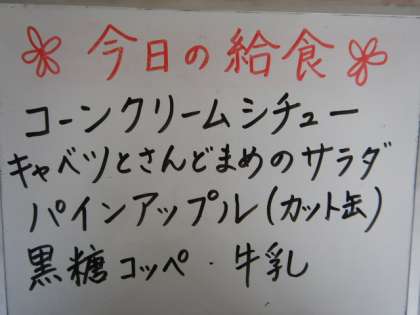 今日の給食
コーンクリームシチュー
キャベツとさんどまめのサラダ
パインアップル(カット缶)
黒糖コッペ・牛乳